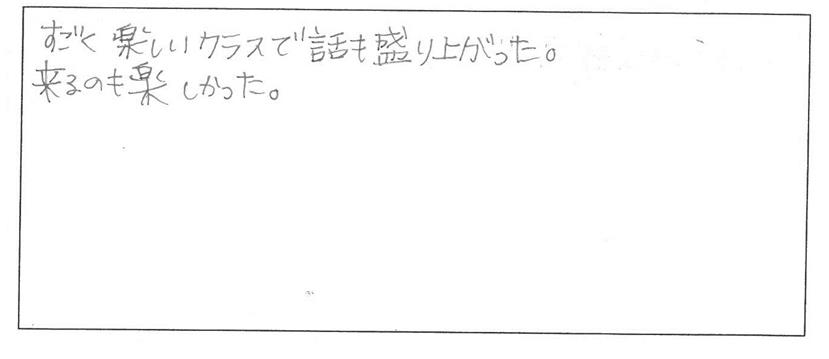 すごく楽しいクラスで話も盛り上がった。
来るのも楽しかった。